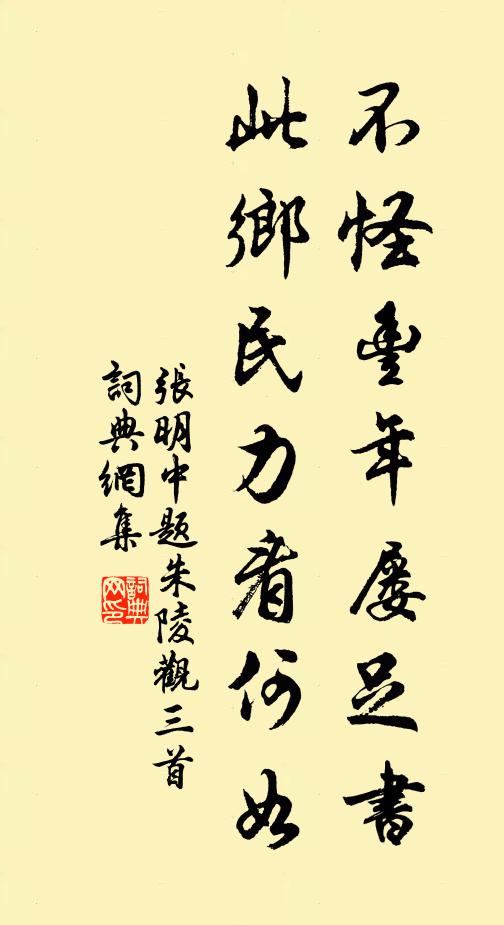 不怪豐年屡足書
此鄉民力看何如
張明中題朱陵觀三首
詞典網集